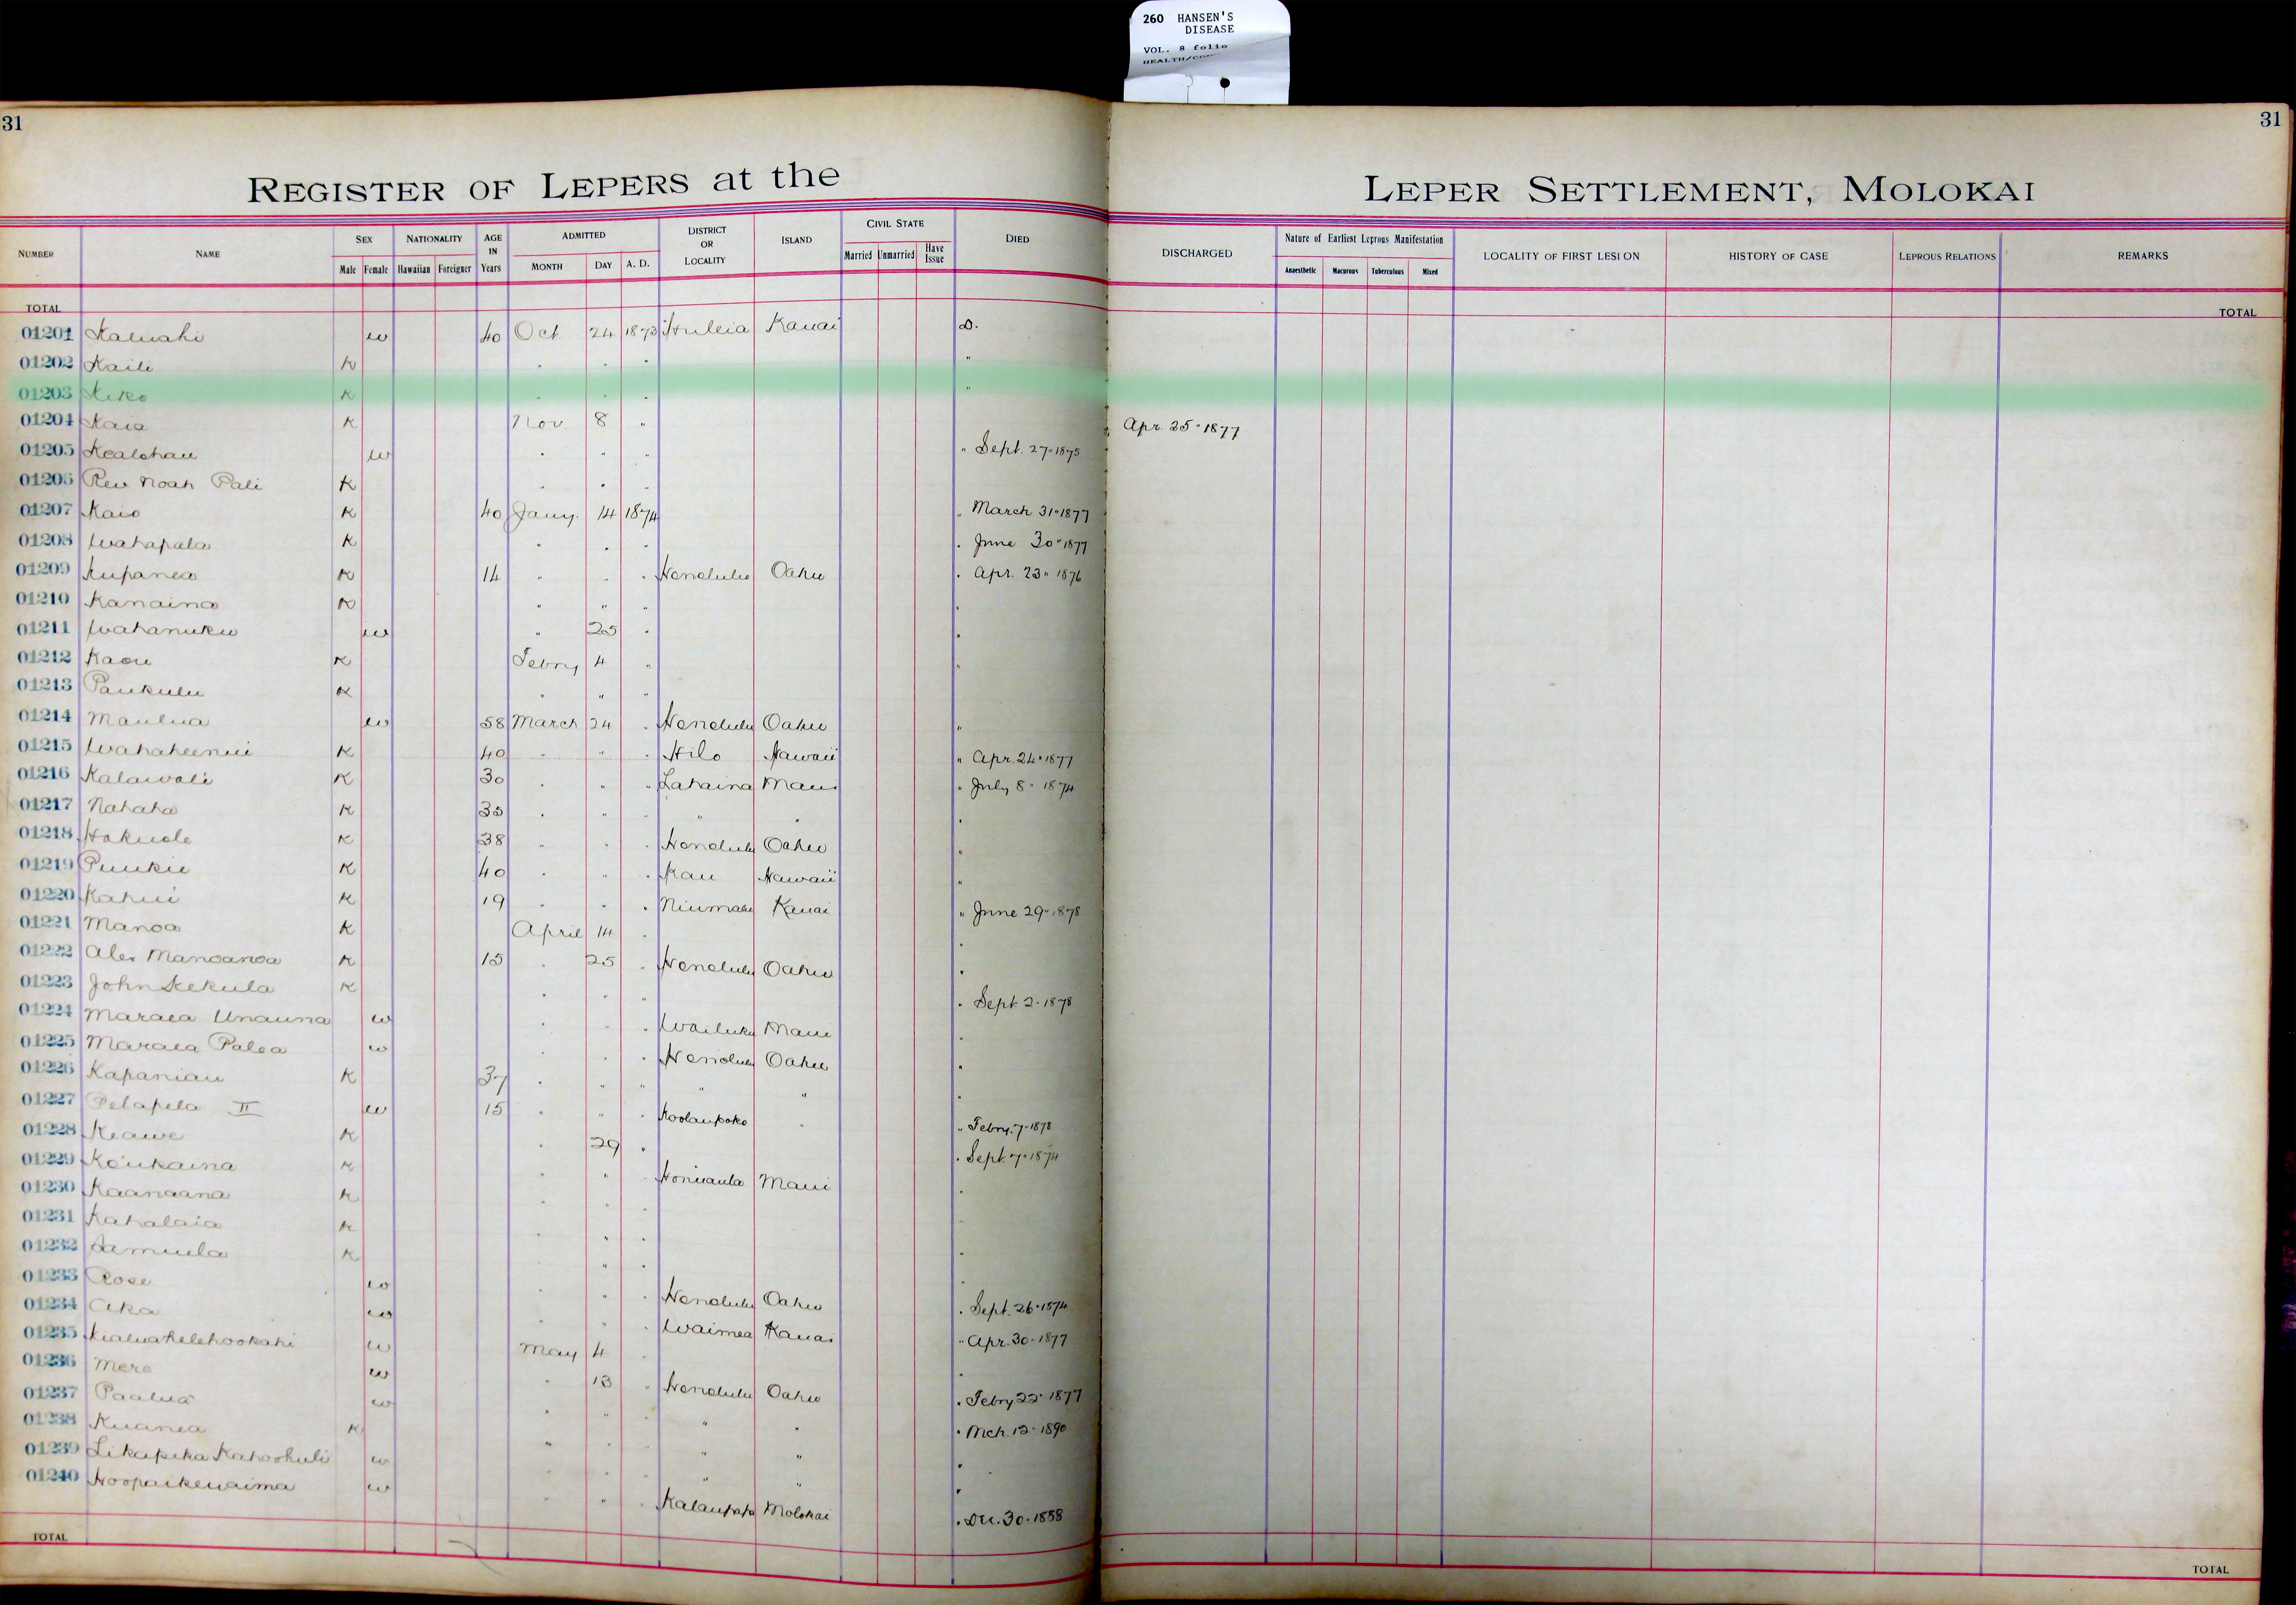 260 HANSEN'S
DISEASE
VOL. 8 folio
31
31
REGISTER OF LEPERS at the LEPER SETTLEMENT, MOLOKAI
NUMBER NAME SEX Male Female NATIONALITY Hawaiian Foreigner AGE IN Years ADMITTED MONTH DAY A. D. DISTRICT OR LOCALITY ISLAND CIVIL STATE Married Unmarried Have Issue DIED DISCHARGED Nature of Earliest Leprous Manifestation Anaesthetic Macurous Tuberculous Mixed LOCALITY OF FIRST LESION HISTORY OF CASE LEPROUS RELATIONS REMARKS
TOTAL TOTAL
01201 Kaluahi w 40 Oct 24 1873 Huleia Kauai D.
01202 Kaili K " " " "
01203 Kiko K " " " "
01204 Kaia K Nov. 8 " " Apr. 25" 1877
01205 Kealohau w " " " " Sept. 27" 1875
01206 Rev Noah Pali K " " "
01207 Kaio K 40 Jany. 14 1874 " March 31" 1877
01208 Wahapala K " " " " June 30" 1877
01209 Kupanea K 14 " " " Honolulu Oahu " Apr. 23" 1876
01210 Kanaina K " " " "
01211 Wahanuku w " 25 " "
01212 Kaou K Febry 4 " "
01213 Paukulu K " " "
01214 Maulua w 58 March 24 " Honolulu Oahu "
01215 Wahaheenui K 40 " " " Hilo Hawaii " Apr. 24" 1877
01216 Kalawale K 30 " " " Lahaina Maui " July 8" 1874
01217 Nahaha K 35 " " " " " "
01218 Hokuole K 38 " " " Honolulu Oahu "
01219 Puukie K 40 " " " Kau Hawaii "
01220 Kahui K 19 " " " Niumalu Kauai " June 29" 1878
01221 Manoa K April 14 " "
01222 Alex Manoanoa K 15 " 25 " Honolulu Oahu "
01223 John Kekula K " " " " Sept. 2" 1878
01224 Maraea Unauna w " " " Wailuku Maui "
01225 Maraea Palea w " " " Honolulu Oahu "
01226 Kapaniau K 37 " " " " " "
01227 Pelapela II w 15 " " " Koolaupoko " " Febry. 7" 1878
01228 Keawe K " 29 " " Sept. 7" 1874
01229 Keukaina K " " " Honuaula Maui "
01230 Kaanaana K " " " "
01231 Kahalaia K " " "
01232 Samuela K " " "
01233 Rose w " " " Honolulu Oahu " Sept. 26" 1874
01234 Aka w " " " Waimea Kauai " Apr. 30" 1877
01235 Kialuahelehookahi w May 4 " "
01236 Mere w " 13 " Honolulu Oahu " Febry 22" 1877
01237 Paalua w " " " " " " Mch. 12" 1890
01238 Kuanea K " " " " " "
01239 Likapeka Kahoohuli w " " " " " "
01240 Hoopaikewaima w " " " Kalaupapa Molokai " Dec. 30" 1888
TOTAL TOTAL